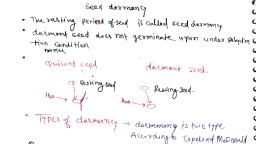 Seed dormancy
• The resting period of seed is called seed dormancy
• dormant seed does not germinate upon under
tive condition
Quiscent seed dormant seed
Resting seed Resting seed
• Types of dormancy → dormmancy is two type
According to Copeland McDonald